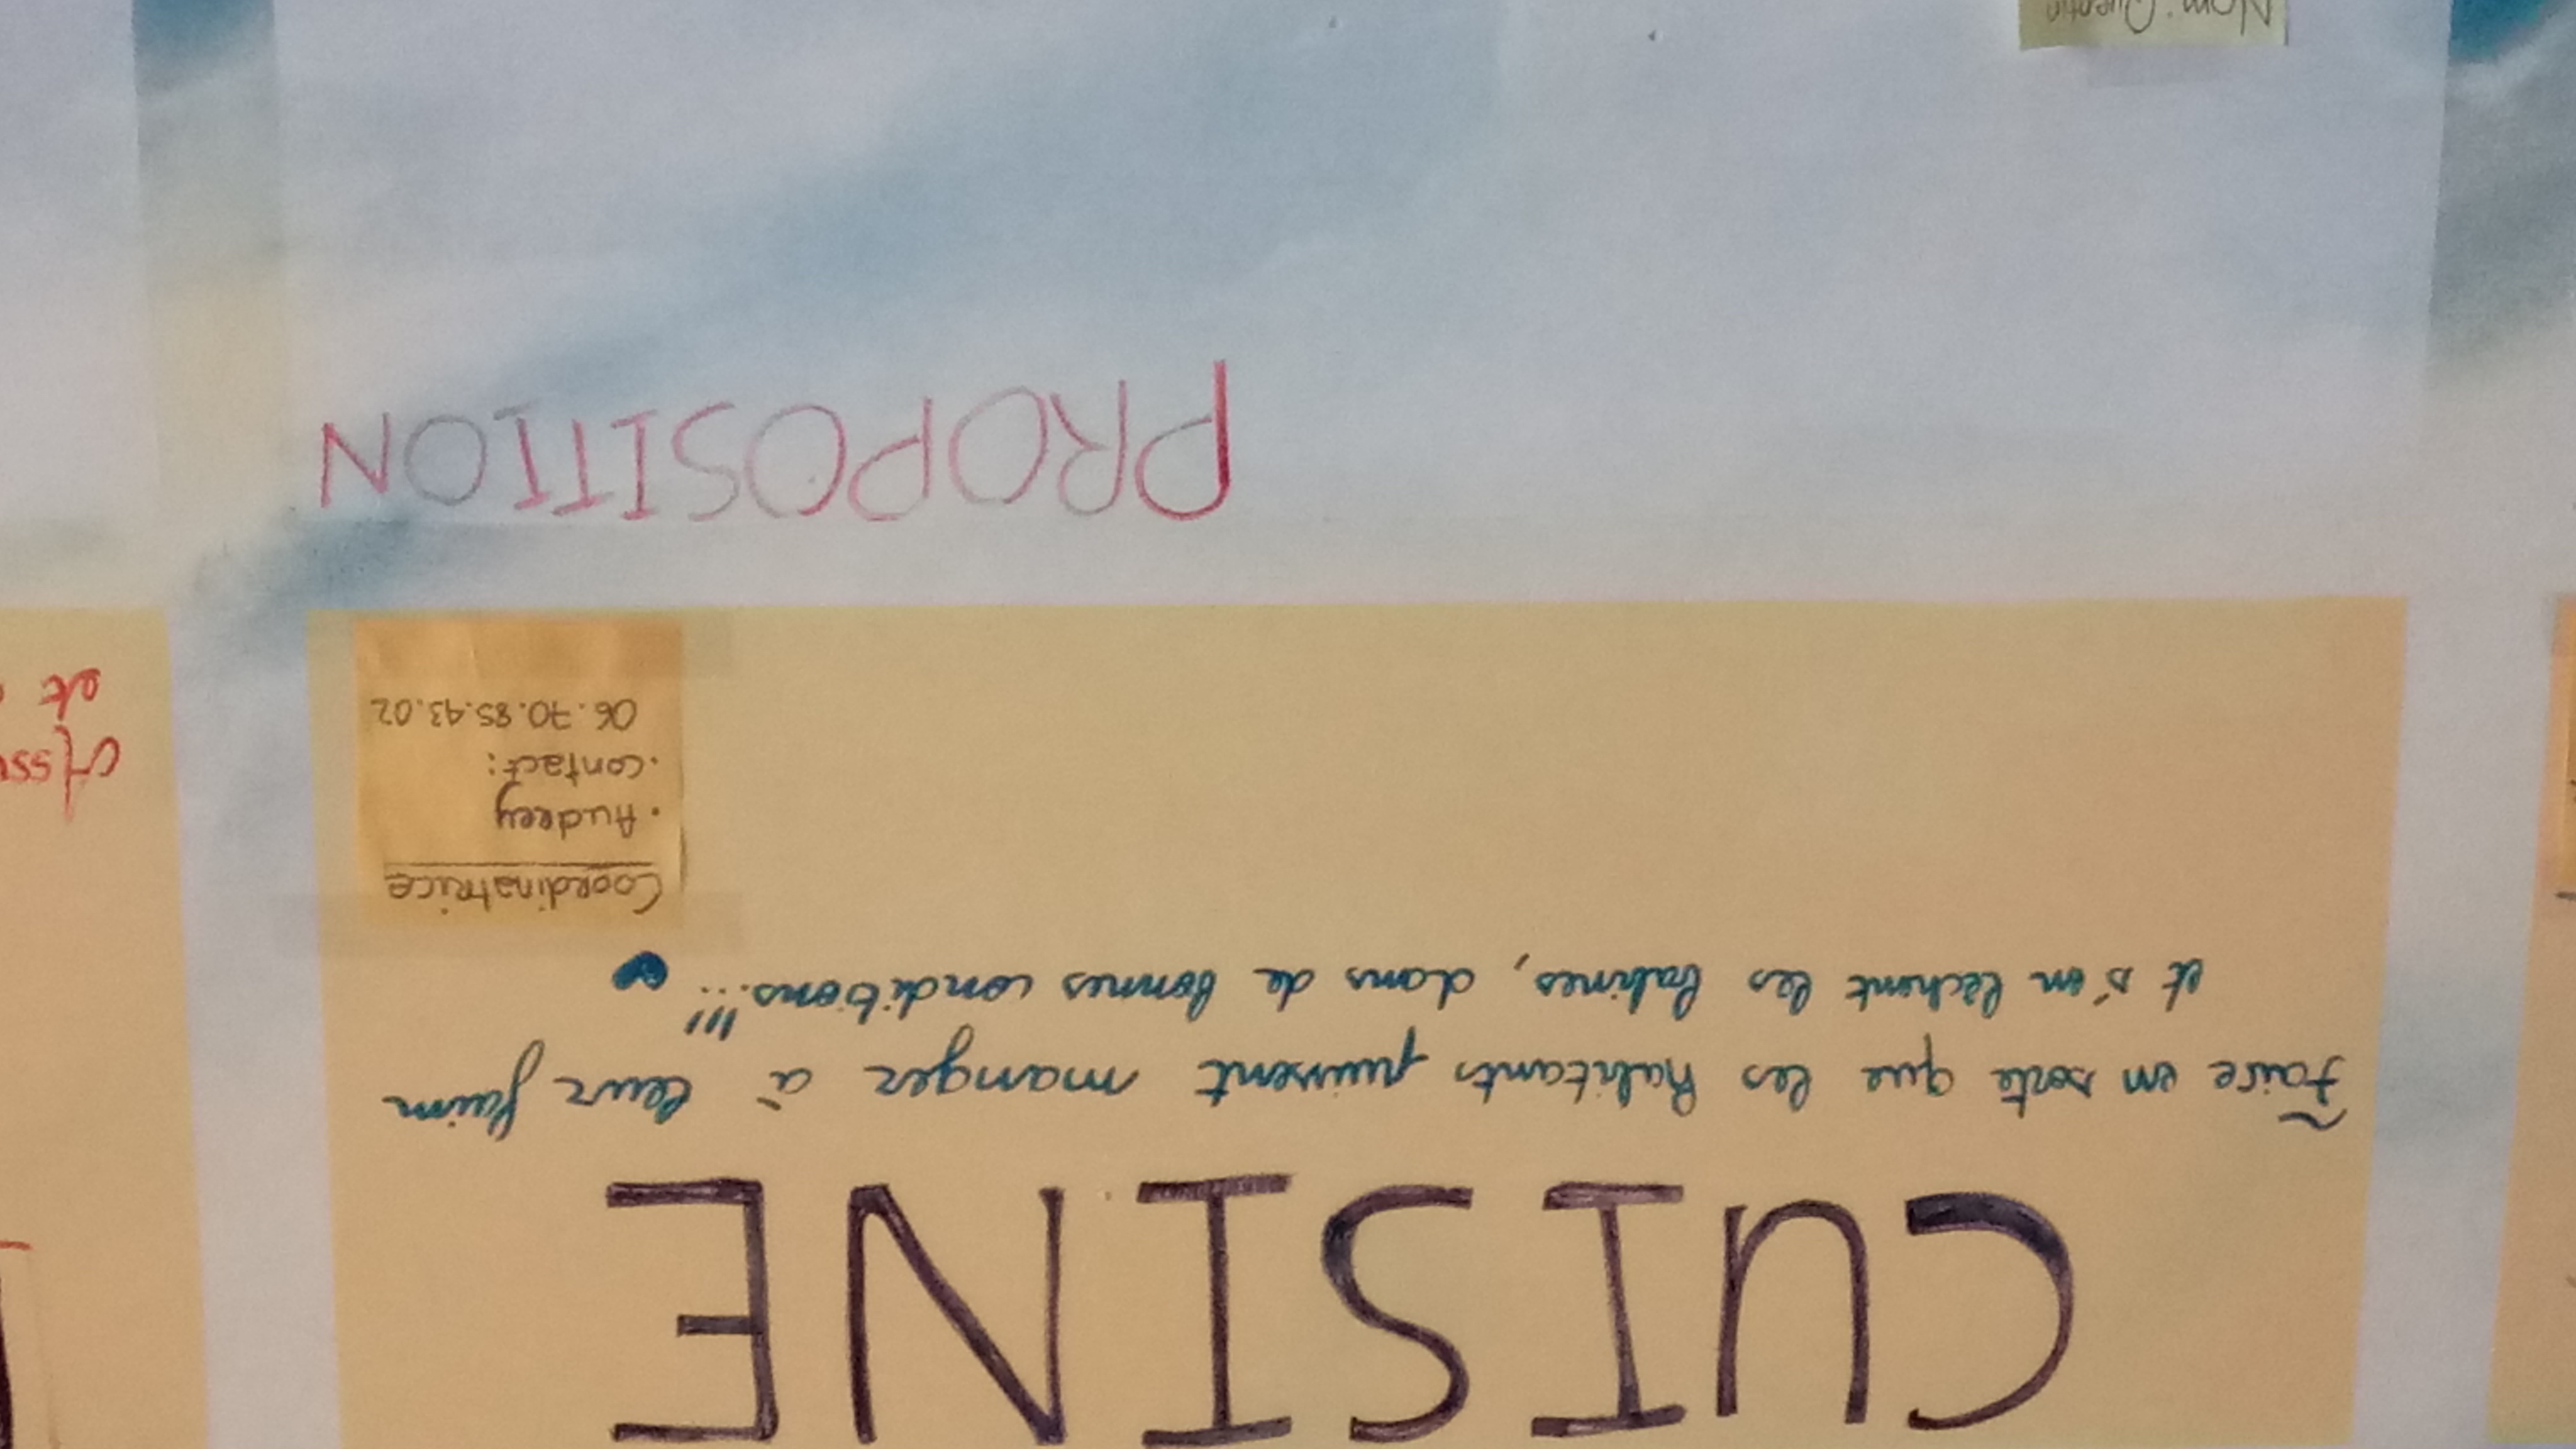 CUISINE
Faire en sorte que les habitants puissent manger à leur faim
et s'en lèchent les babines, dans de bonnes conditions!!!...
Coordinatrice
• Audrey
• contact:
06.70.85.43.02
PROPOSITION
Nom: Quentin
et